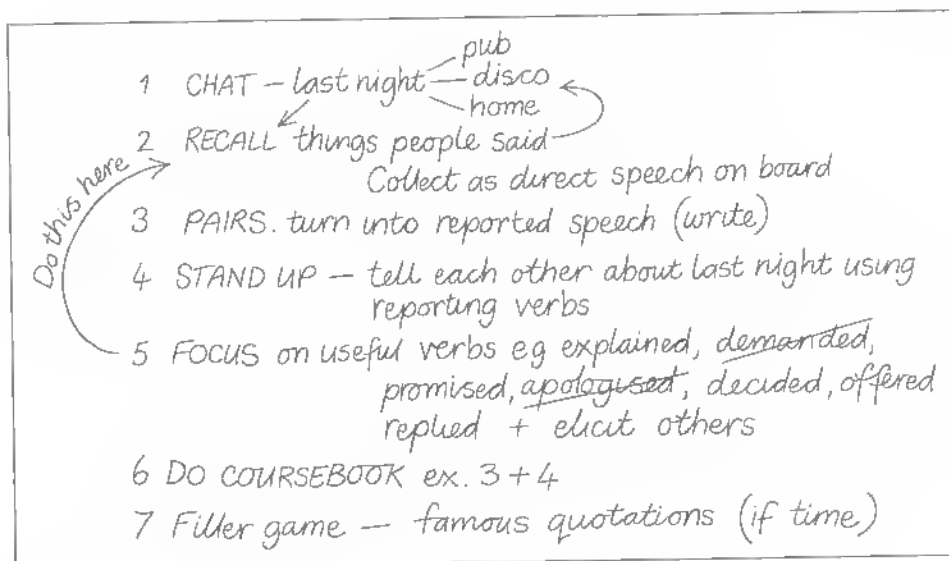 pub
1 CHAT – last night – disco
home
2 RECALL things people said
Collect as direct speech on board
Do this here
3 PAIRS. turn into reported speech (write)
4 STAND UP – tell each other about last night using
reporting verbs
5 FOCUS on useful verbs eg explained, demanded,
promised, apologised, decided, offered
replied + elicit others
6 DO COURSEBOOK ex. 3 + 4
7 Filler game – famous quotations (if time)